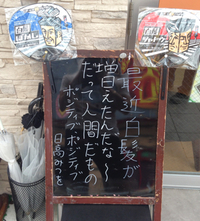 最近白髪が
増えたんだな〜
だって人間だもの
ポジティブポジティブ
日高みつを